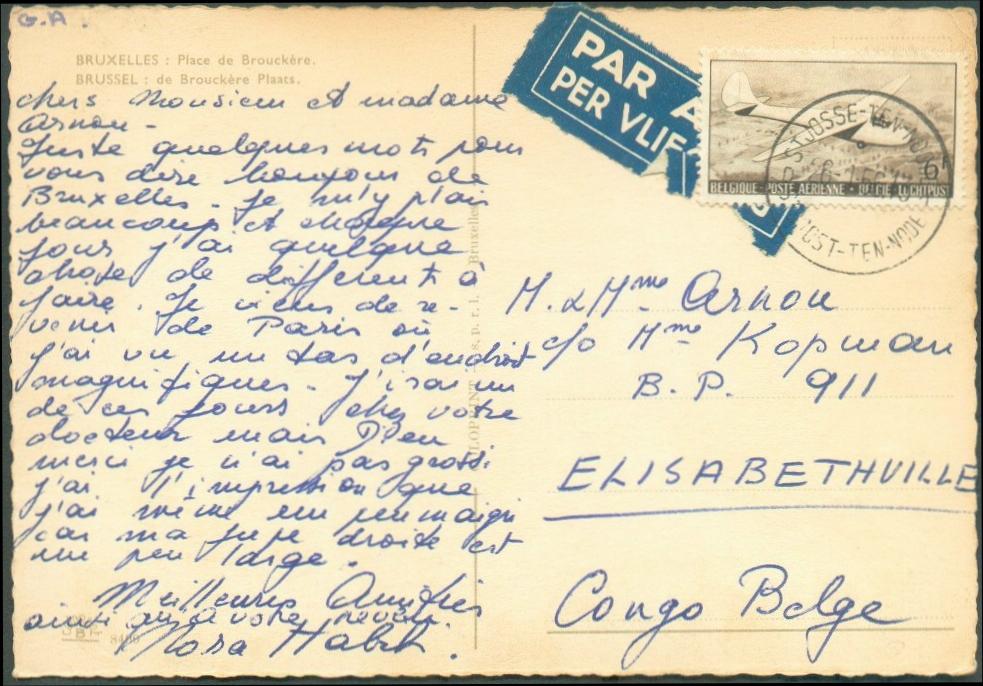 G.A.
BRUXELLES : Place de Brouckère.
BRUSSEL : de Brouckère Plaats.
chers Monsieur et madame
Arnou -
Juste quelques mots pour
vous dire bonjour de
Bruxelles - je m'y plais
beaucoup et chaque
jour j'ai quelque
chose de différent à
faire. Je viens de re-
venir de Paris où
j'ai vu un tas d'endroit
magnifiques - J'irai un
de ces jours chez votre
docteur mais Dieu
merci je n'ai pas grossi
j'ai l'impression que
j'ai même un peu maigri
car ma jupe droite est
un peu large.
Meilleures Amitiés
ainsi qu'à votre
Nora
8409
s. p. r. l. Bruxelles
PAR A
PER VLIE
6F
BELGIQUE · POSTE AÉRIENNE · BELGIE · LUCHTPOST
ST JOSSE-TEN-NOODE
JOOST-TEN-NODE
M. & Mme Arnou
c/o Mme Kopman
B.P. 911
ELISABETHVILLE
Congo Belge